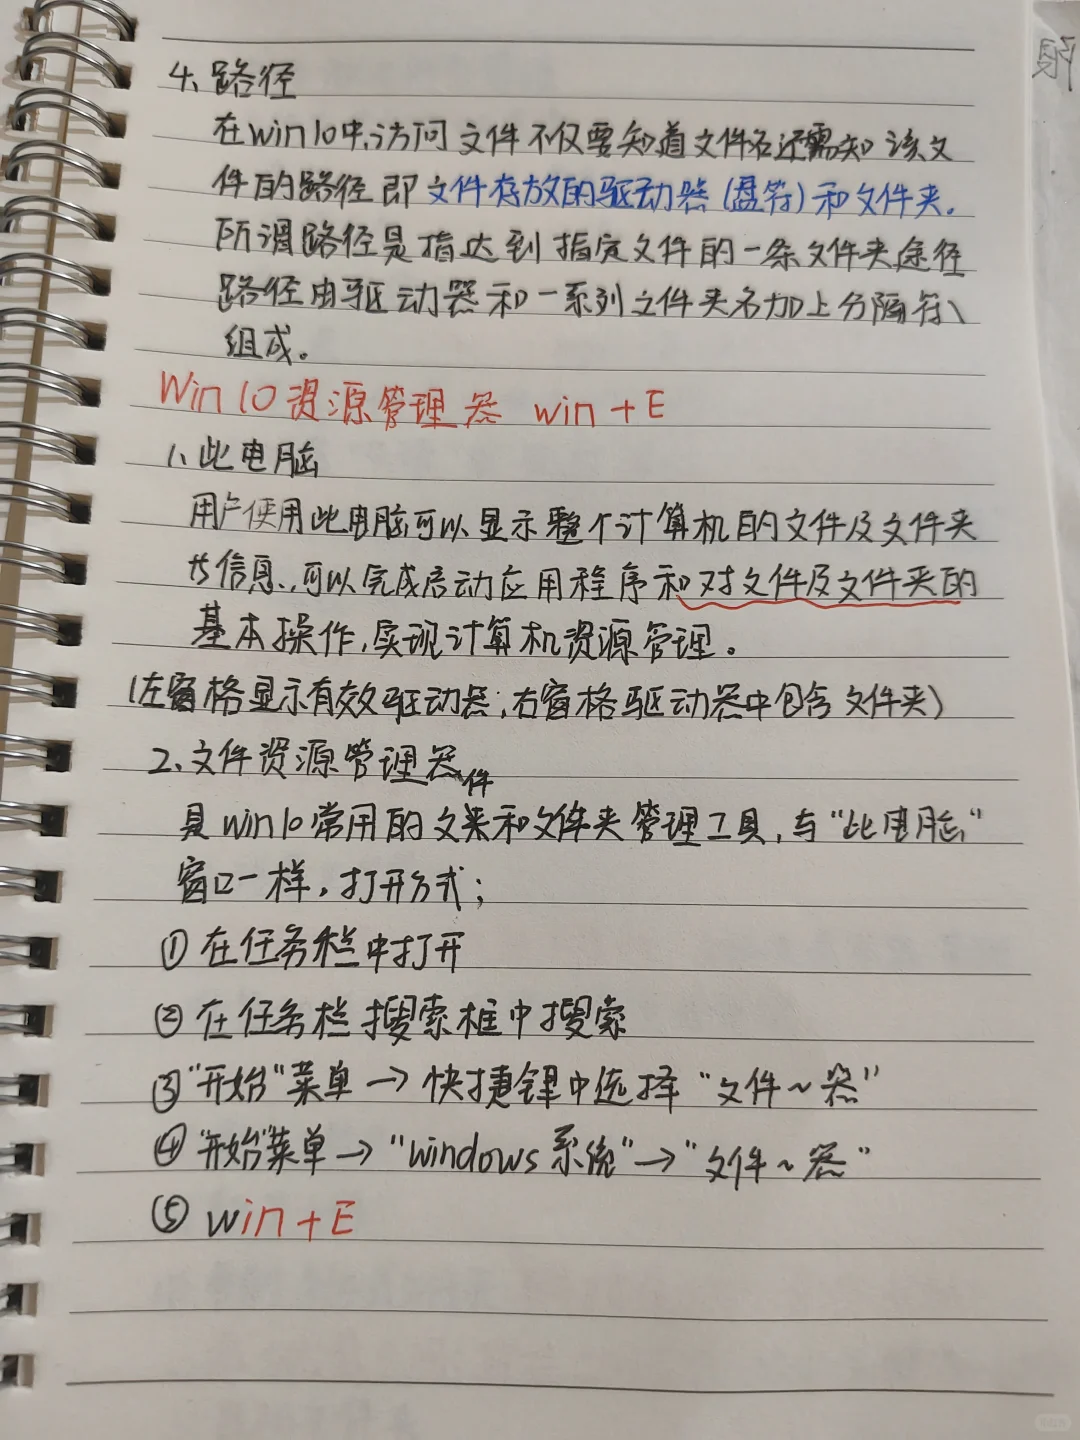 4、路径
在win10中,访问文件不仅要知道文件名还需知该文
件的路径即文件存放的驱动器(盘符)和文件夹.
所谓路径是指达到指定文件的一条文件夹途径
路径由驱动器和一系列文件夹名加上分隔符\
组成。
Win10资源管理器 win+E
1、此电脑
用户使用此电脑可以显示整个计算机的文件及文件夹
等信息.,可以完成启动应用程序和对文件及文件夹的
基本操作,实现计算机资源管理。
(左窗格显示有效驱动器;右窗格驱动器中包含文件夹)
2、文件资源管理器
是win10常用的文件夹和文件夹管理工具,与"此电脑"
窗口一样,打开方式;
①在任务栏中打开
②在任务栏搜索框中搜索
③"开始"菜单→快捷键中选择"文件~器"
④"开始"菜单→"windows系统"→"文件~器"
⑤win+E